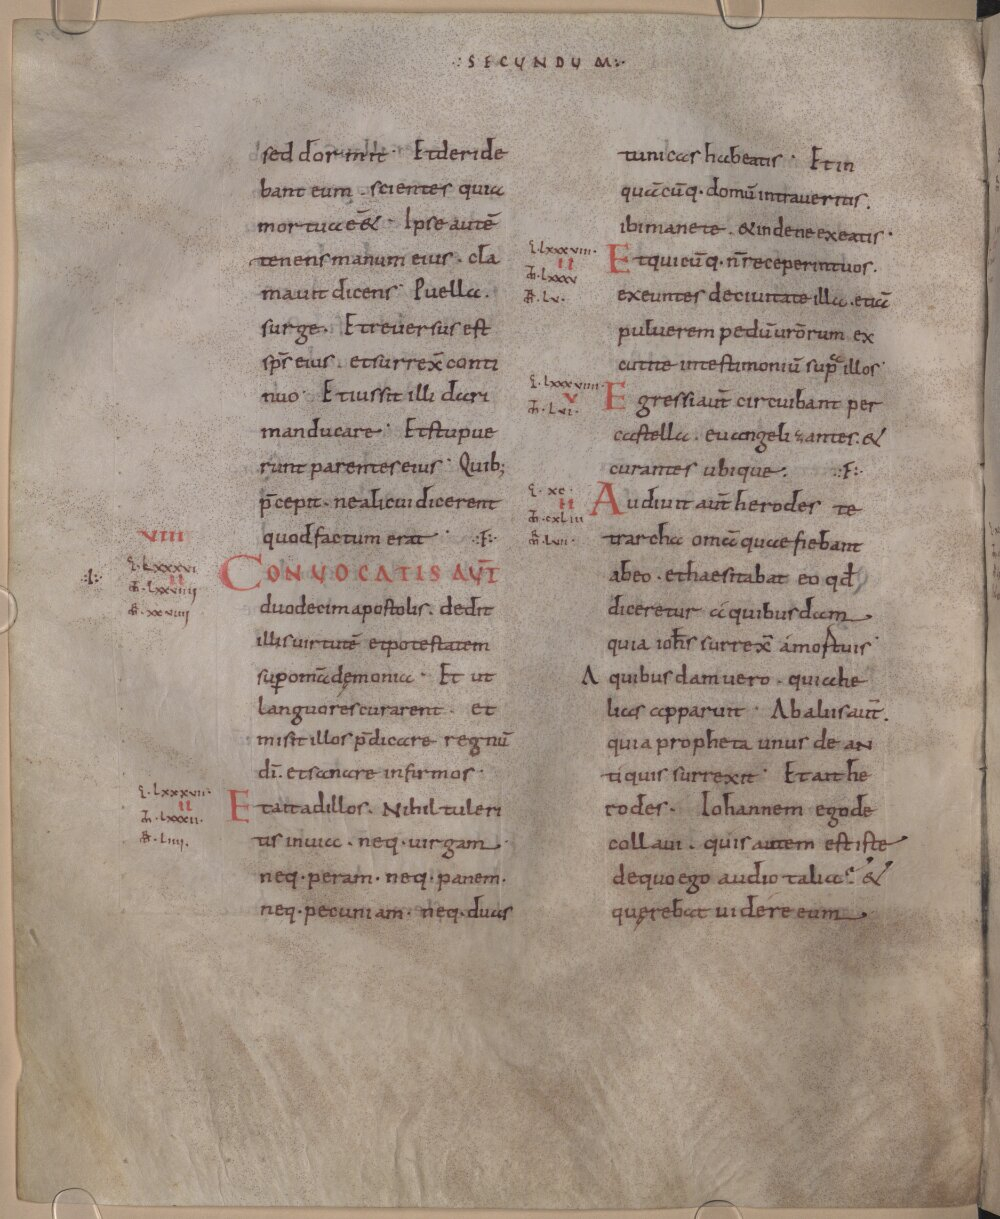 :SECUNDUM:
sed dormit · Et deride
bant eum . scientes quia
mortua eē& · Ipse autē
tenens manum eius . cla
mavit dicens · Puella .
surge . Et reversus est
sp̄s eius . et surrex̄ conti
nuo · Et iussit illi dari
manducare · Et stupue
runt parentes eius · Quib;
p̄cepit . ne alicui dicerent
quod factum erat · :F:
VIII
·I·
L·LXXXVI
II
CONVOCATIS AUT̄
duodecim apostolis . dedit
illis virtutē et potestatem
sup omā dęmonia · Et ut
languores curarent · et
misit illos p̄dicare regnū
dī . et sanare infirmos ·
L·LXXXVII·
II
M·LXXXII·
R·LIII·
Et ait ad illos . Nihil tuleri
tis in via . neq· virgam .
neq· peram · neq· panem ·
neq· pecuniam · neq· duas
tunicas habeatis · Et in
quācūq· domū intraveritis .
ibi manete . & inde ne exeatis ·
L·LXXXVIII·
II
M·LXXXV
R·LV·
Et quicūq· n̄ receperint vos .
exeuntes de civitate illa . etiā
pulverem pedū vr̄orum ex
cutite in testimoniū supͣ illos ·
L·LXXXVIIII·
V
M·LVI·
Egressi aut̄ circuibant per
castella . euangelizantes . &
curantes ubique : :F:
L·XC·
II
M·CXLIII
R·LVII·
Audivit aut̄ herodes te
trarcha omā quae fiebant
ab eo . et haesitabat eo qđ
diceretur a quibusdam
quia ioħs surrex̄ a mortuis ·
A quibusdam vero . quia he
lias apparuit · Ab aliis aut̄ .
quia propheta unus de an
tiquis surrexit · Et ait he
rodes · Iohannem ego de
collavi . quis autem est iste
de quo ego audio talia · &
quęrebat videre eum